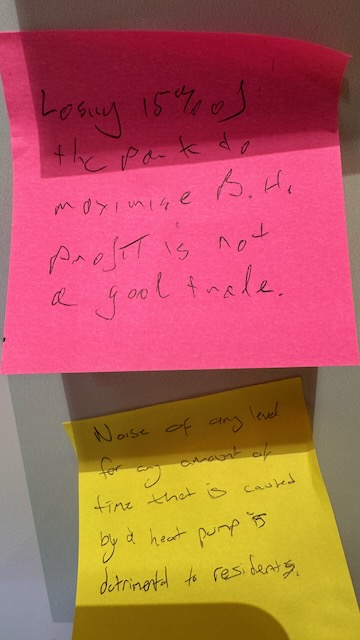 Losing 15% of
the park to
maximise B.H.
profit is not
a good trade.
Noise of any level
for any amount of
time that is caused
by a heat pump is
detrimental to residents.